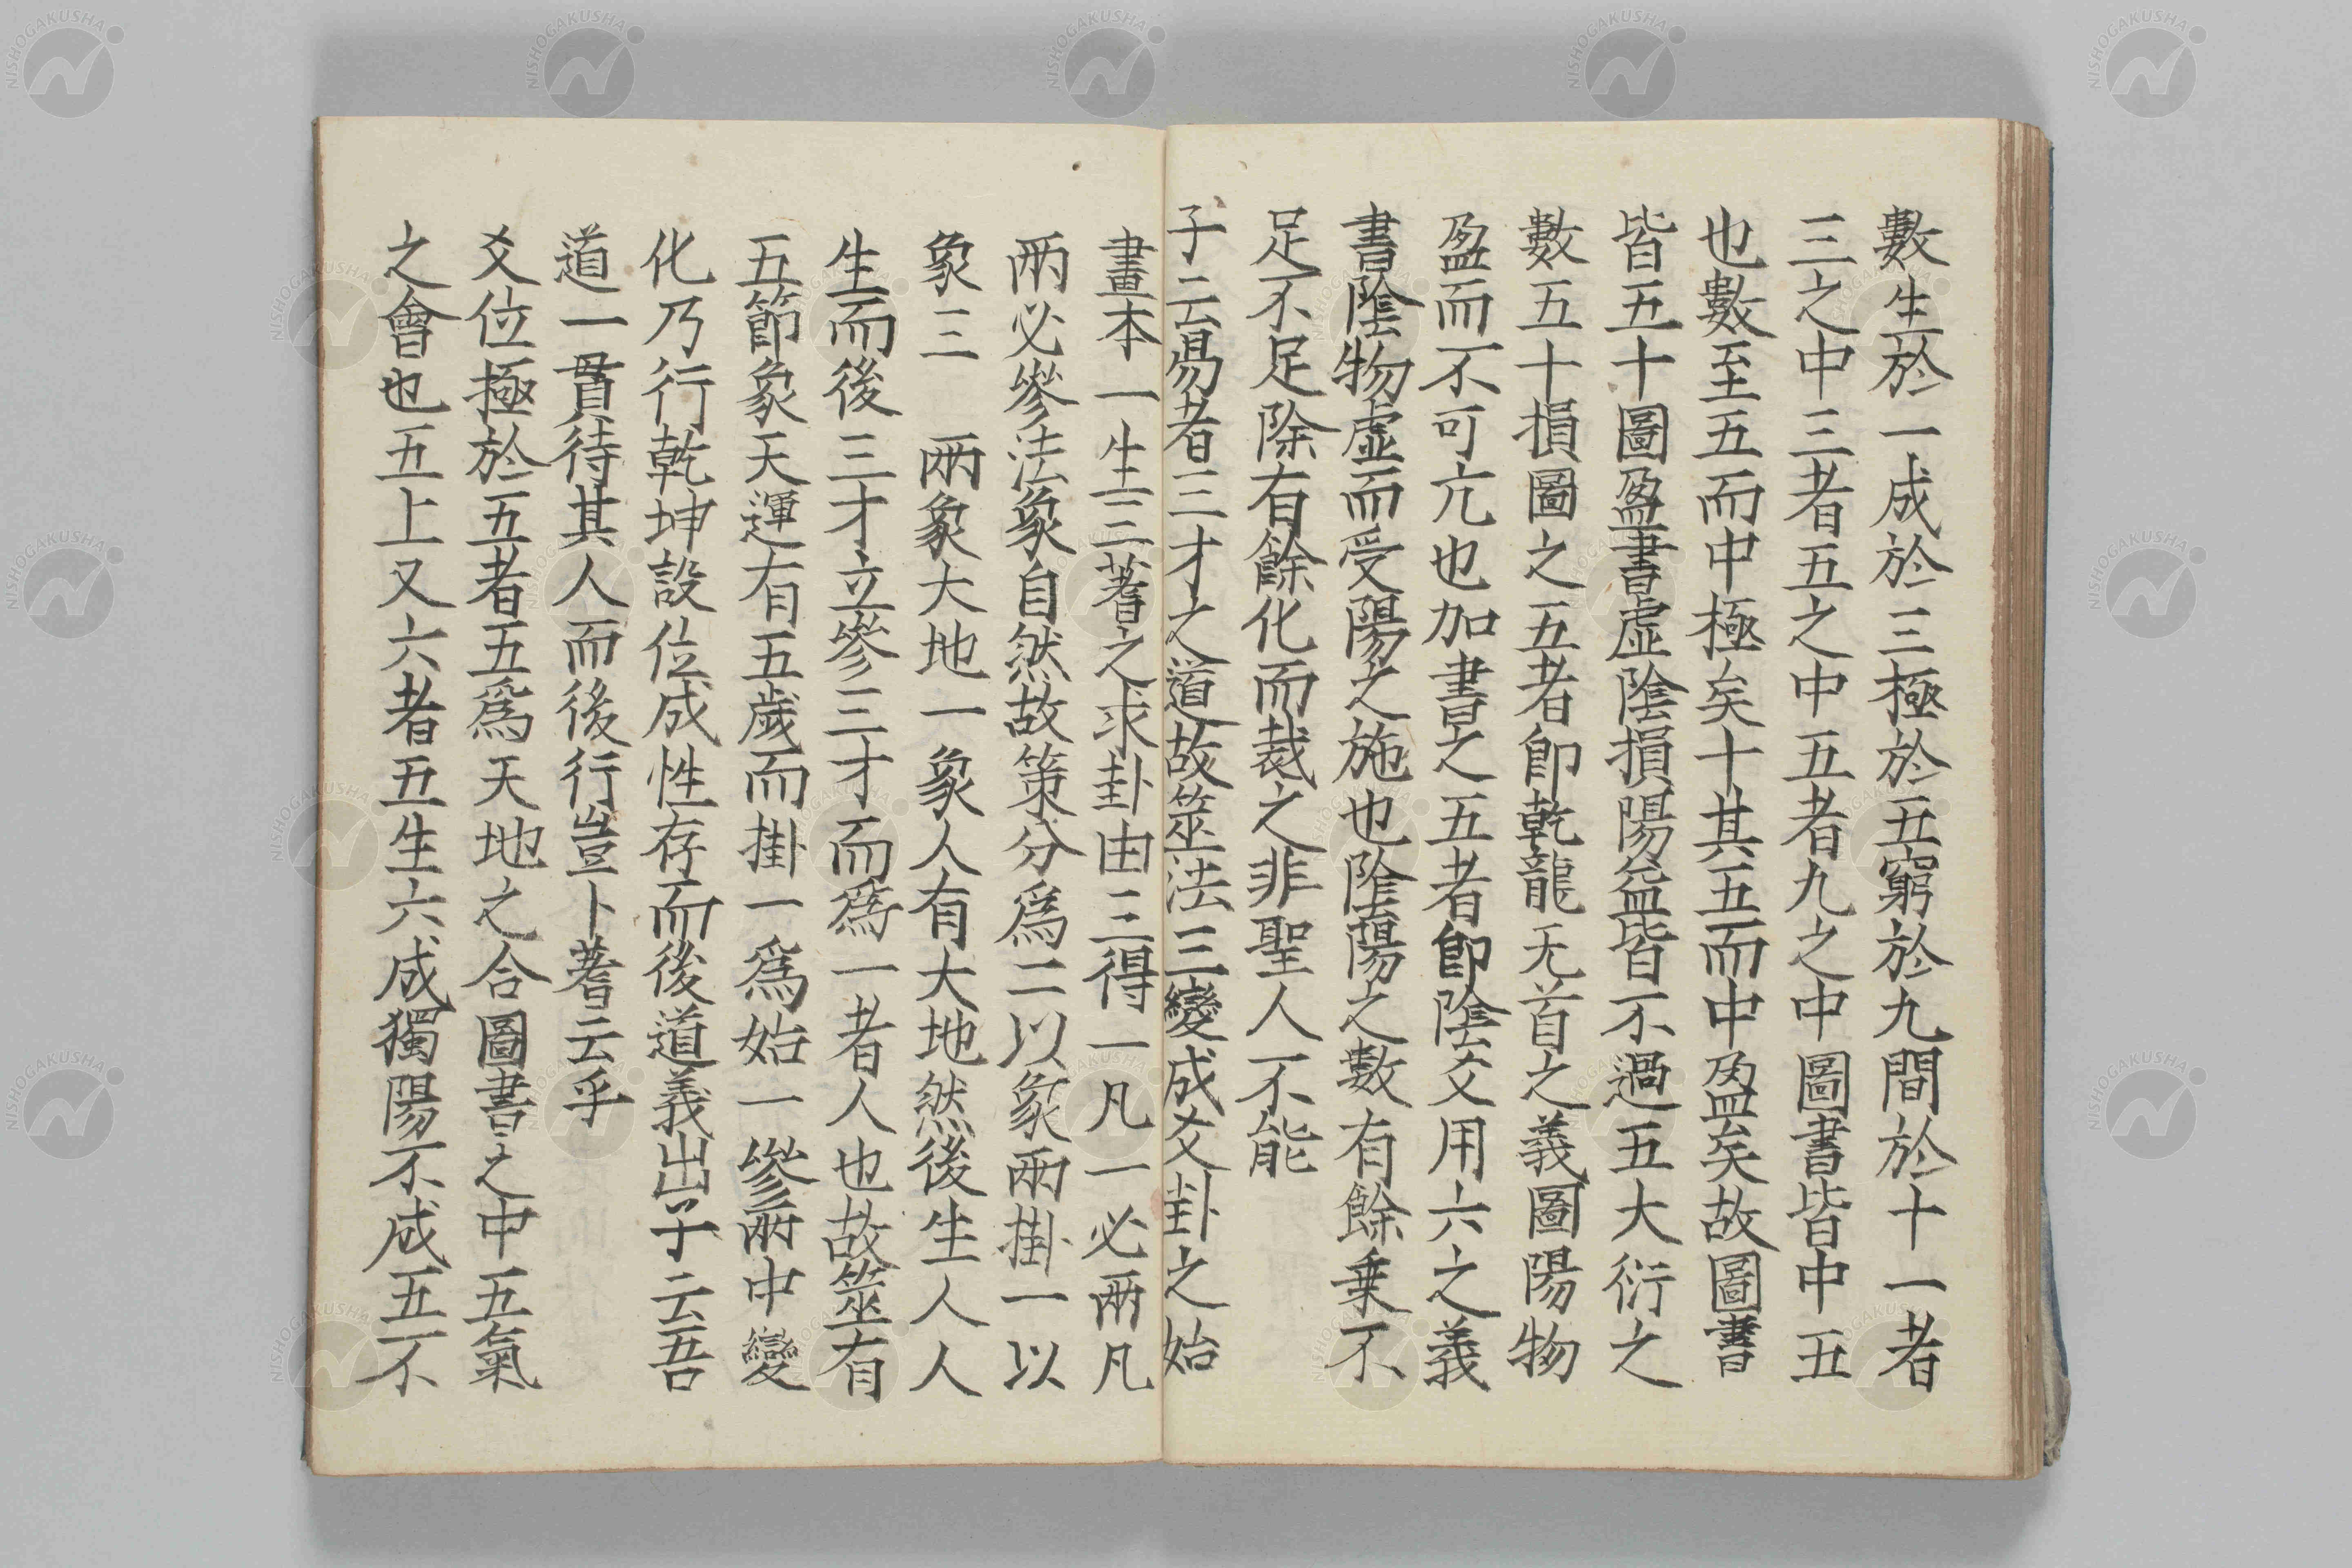 數生於一成於三極於五窮於九間於十一者
三之中三者五之中五者九之中圖書皆中五
也數至五而中極矣十其五而中盈矣故圖書
皆五十圖盈書虛陰損陽益皆不過五大衍之
數五十損圖之五者卽乾龍无首之義圖陽物
盈而不可亢也加書之五者卽陰爻用六之義
書陰物虛而受陽之施也陰陽之數有餘乗不
足不足除有餘化而裁之非聖人不能
子云易者三才之道故筮法三變成爻卦之始
畫本一生三蓍之求卦由三得一凡一必兩凡
兩必參法象自然故策分爲二以象兩掛一以
象三 兩象大地一象人有大地然後生人人
生而後三才立參三才而爲一者人也故筮有
五節象天運有五歲而掛一爲始一參兩中變
化乃行乾坤設位成性存而後道義出子云吾
道一貫待其人而後行豈卜蓍云乎
爻位極於五者五爲天地之合圖書之中五氣
之會也五上又六者五生六成獨陽不成五不
NISHOGAKUSHA